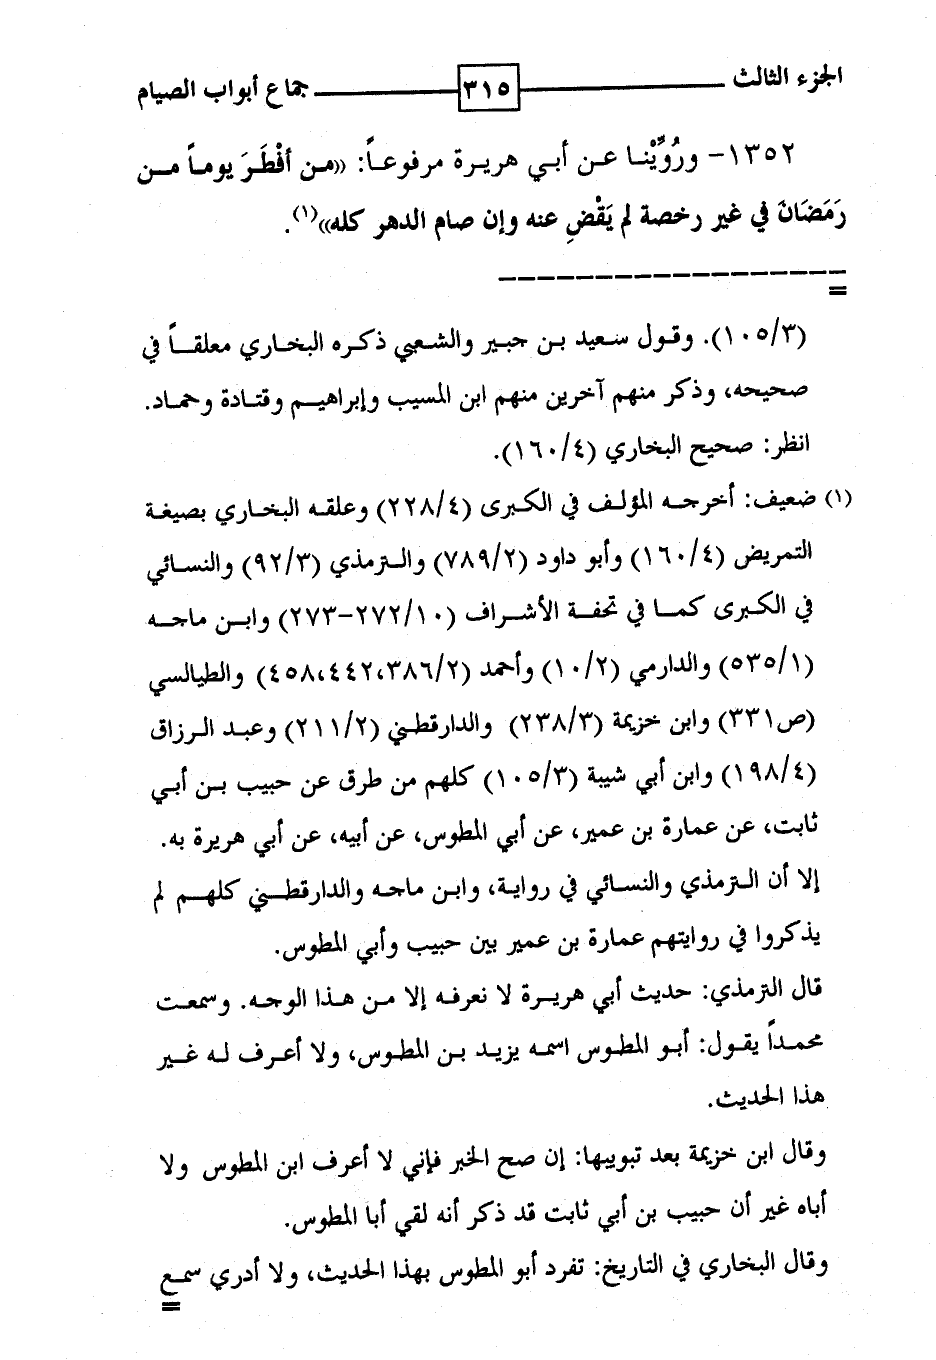 الجزء الثالث ٣١٥ جماع أبواب الصيام
١٣٥٢- ورُوِّيْنا عن أبي هريرة مرفوعاً: «من أفْطَرَ يوماً من
رَمَضَانَ في غير رخصة لم يَقْضِ عنه وإن صام الدهر كله»(١).
=
(١٠٥/٣). وقول سعيد بن جبير والشعبي ذكره البخاري معلقاً في
صحيحه، وذكر منهم آخرين منهم ابن المسيب وإبراهيم وقتادة وحماد.
انظر: صحيح البخاري (١٦٠/٤).
(١) ضعيف: أخرجه المؤلف في الكبرى (٢٢٨/٤) وعلقه البخاري بصيغة
التمريض (١٦٠/٤) وأبو داود (٧٨٩/٢) والترمذي (٩٢/٣) والنسائي
في الكبرى كما في تحفة الأشراف (٢٧٢/١٠-٢٧٣) وابن ماجه
(٥٣٥/١) والدارمي (١٠/٢) وأحمد (٣٨٦/٢،٤٤٢،٤٥٨) والطيالسي
(ص٣٣١) وابن خزيمة (٢٣٨/٣) والدارقطني (٢١١/٢) وعبد الرزاق
(١٩٨/٤) وابن أبي شيبة (١٠٥/٣) كلهم من طرق عن حبيب بن أبي
ثابت، عن عمارة بن عمير، عن أبي المطوس، عن أبيه، عن أبي هريرة به.
إلا أن الترمذي والنسائي في رواية، وابن ماجه والدارقطني كلهم لم
يذكروا في روايتهم عمارة بن عمير بين حبيب وأبي المطوس.
قال الترمذي: حديث أبي هريرة لا نعرفه إلا من هذا الوجه. وسمعت
محمداً يقول: أبو المطوس اسمه يزيد بن المطوس، ولا أعرف له غير
هذا الحديث.
وقال ابن خزيمة بعد تبويبها: إن صح الخبر فإني لا أعرف ابن المطوس ولا
أباه غير أن حبيب بن أبي ثابت قد ذكر أنه لقي أبا المطوس.
وقال البخاري في التاريخ: تفرد أبو المطوس بهذا الحديث، ولا أدري سمع
=